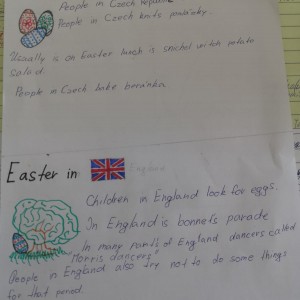 People in Czech Republic
People in Czech knits pomlázky
Usually is on Easter lunch is snichel witch potato
salad.
People in Czech bake
Easter in England
Children in England look for eggs.
In England is bonnets parade
In many part's of England dancers called
"Morris dancers"
People in England also try not to do some things
for that period.